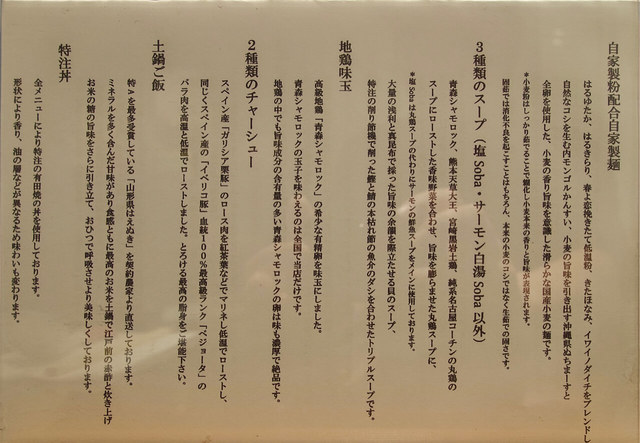 自家製粉配合自家製麺
はるゆたか、はるきらり、春よ恋挽きたて低温粉、きたほなみ、イワイノダイチをブレンドし
自然なコシを生む内モンゴルかんすい、小麦の旨味を引き出す沖縄県ぬちまーすと
全卵を使用した、小麦の香り旨味を意識した滑らかな国産小麦の麺です。
*小麦粉はしっかり茹でることで糖化し小麦本来の香りと旨味が表現されます。
固茹では消化不良を起こすことはもちろん、本来の小麦のコシではなく生茹での固さです。
3種類のスープ（塩Soba・サーモン白湯Soba以外）
青森シャモロック、熊本天草大王、宮崎黒岩土鶏、純系名古屋コーチンの丸鶏の
スープにローストした香味野菜を合わせ、旨味を膨らませた丸鶏スープに、
*塩Sobaは丸鶏スープの代わりにサーモンの鮮魚スープをメインに使用しております。
大量の浅利と真昆布で採った旨味の余韻を際立たせる貝のスープ、
特注の削り節機で削った鰹と鯖の本枯れ節の魚介のダシを合わせたトリプルスープです。
地鶏味玉
高級地鶏「青森シャモロック」の希少な有精卵を味玉にしました。
青森シャモロックの玉子を味わえるのは全国で当店だけです。
地鶏の中でも旨味成分の含有量の多い青森シャモロックの卵は味も濃厚で絶品です。
2種類のチャーシュー
スペイン産「ガリシア栗豚」のロース肉を紅茶葉などでマリネし低温でローストし、
同じくスペイン産の「イベリコ豚」血統100%最高級ランク「ベジョータ」の
バラ肉を高温と低温でローストしました。とろける最高の脂身をご堪能下さい。
土鍋ご飯
特Aを最多受賞している「山形県はえぬき」を契約農家より直送しております。
ミネラルを多く含んだ甘味があり食感ともに最高のお米を土鍋で江戸前の赤酢と炊き上げ
お米の糖の旨味をさらに引き立て、おひつで呼吸させより美味しくしております。
特注丼
全メニューにより特注の有田焼の丼を使用しております。
形状により香り、油の層などが異なるため味わいも変わります。